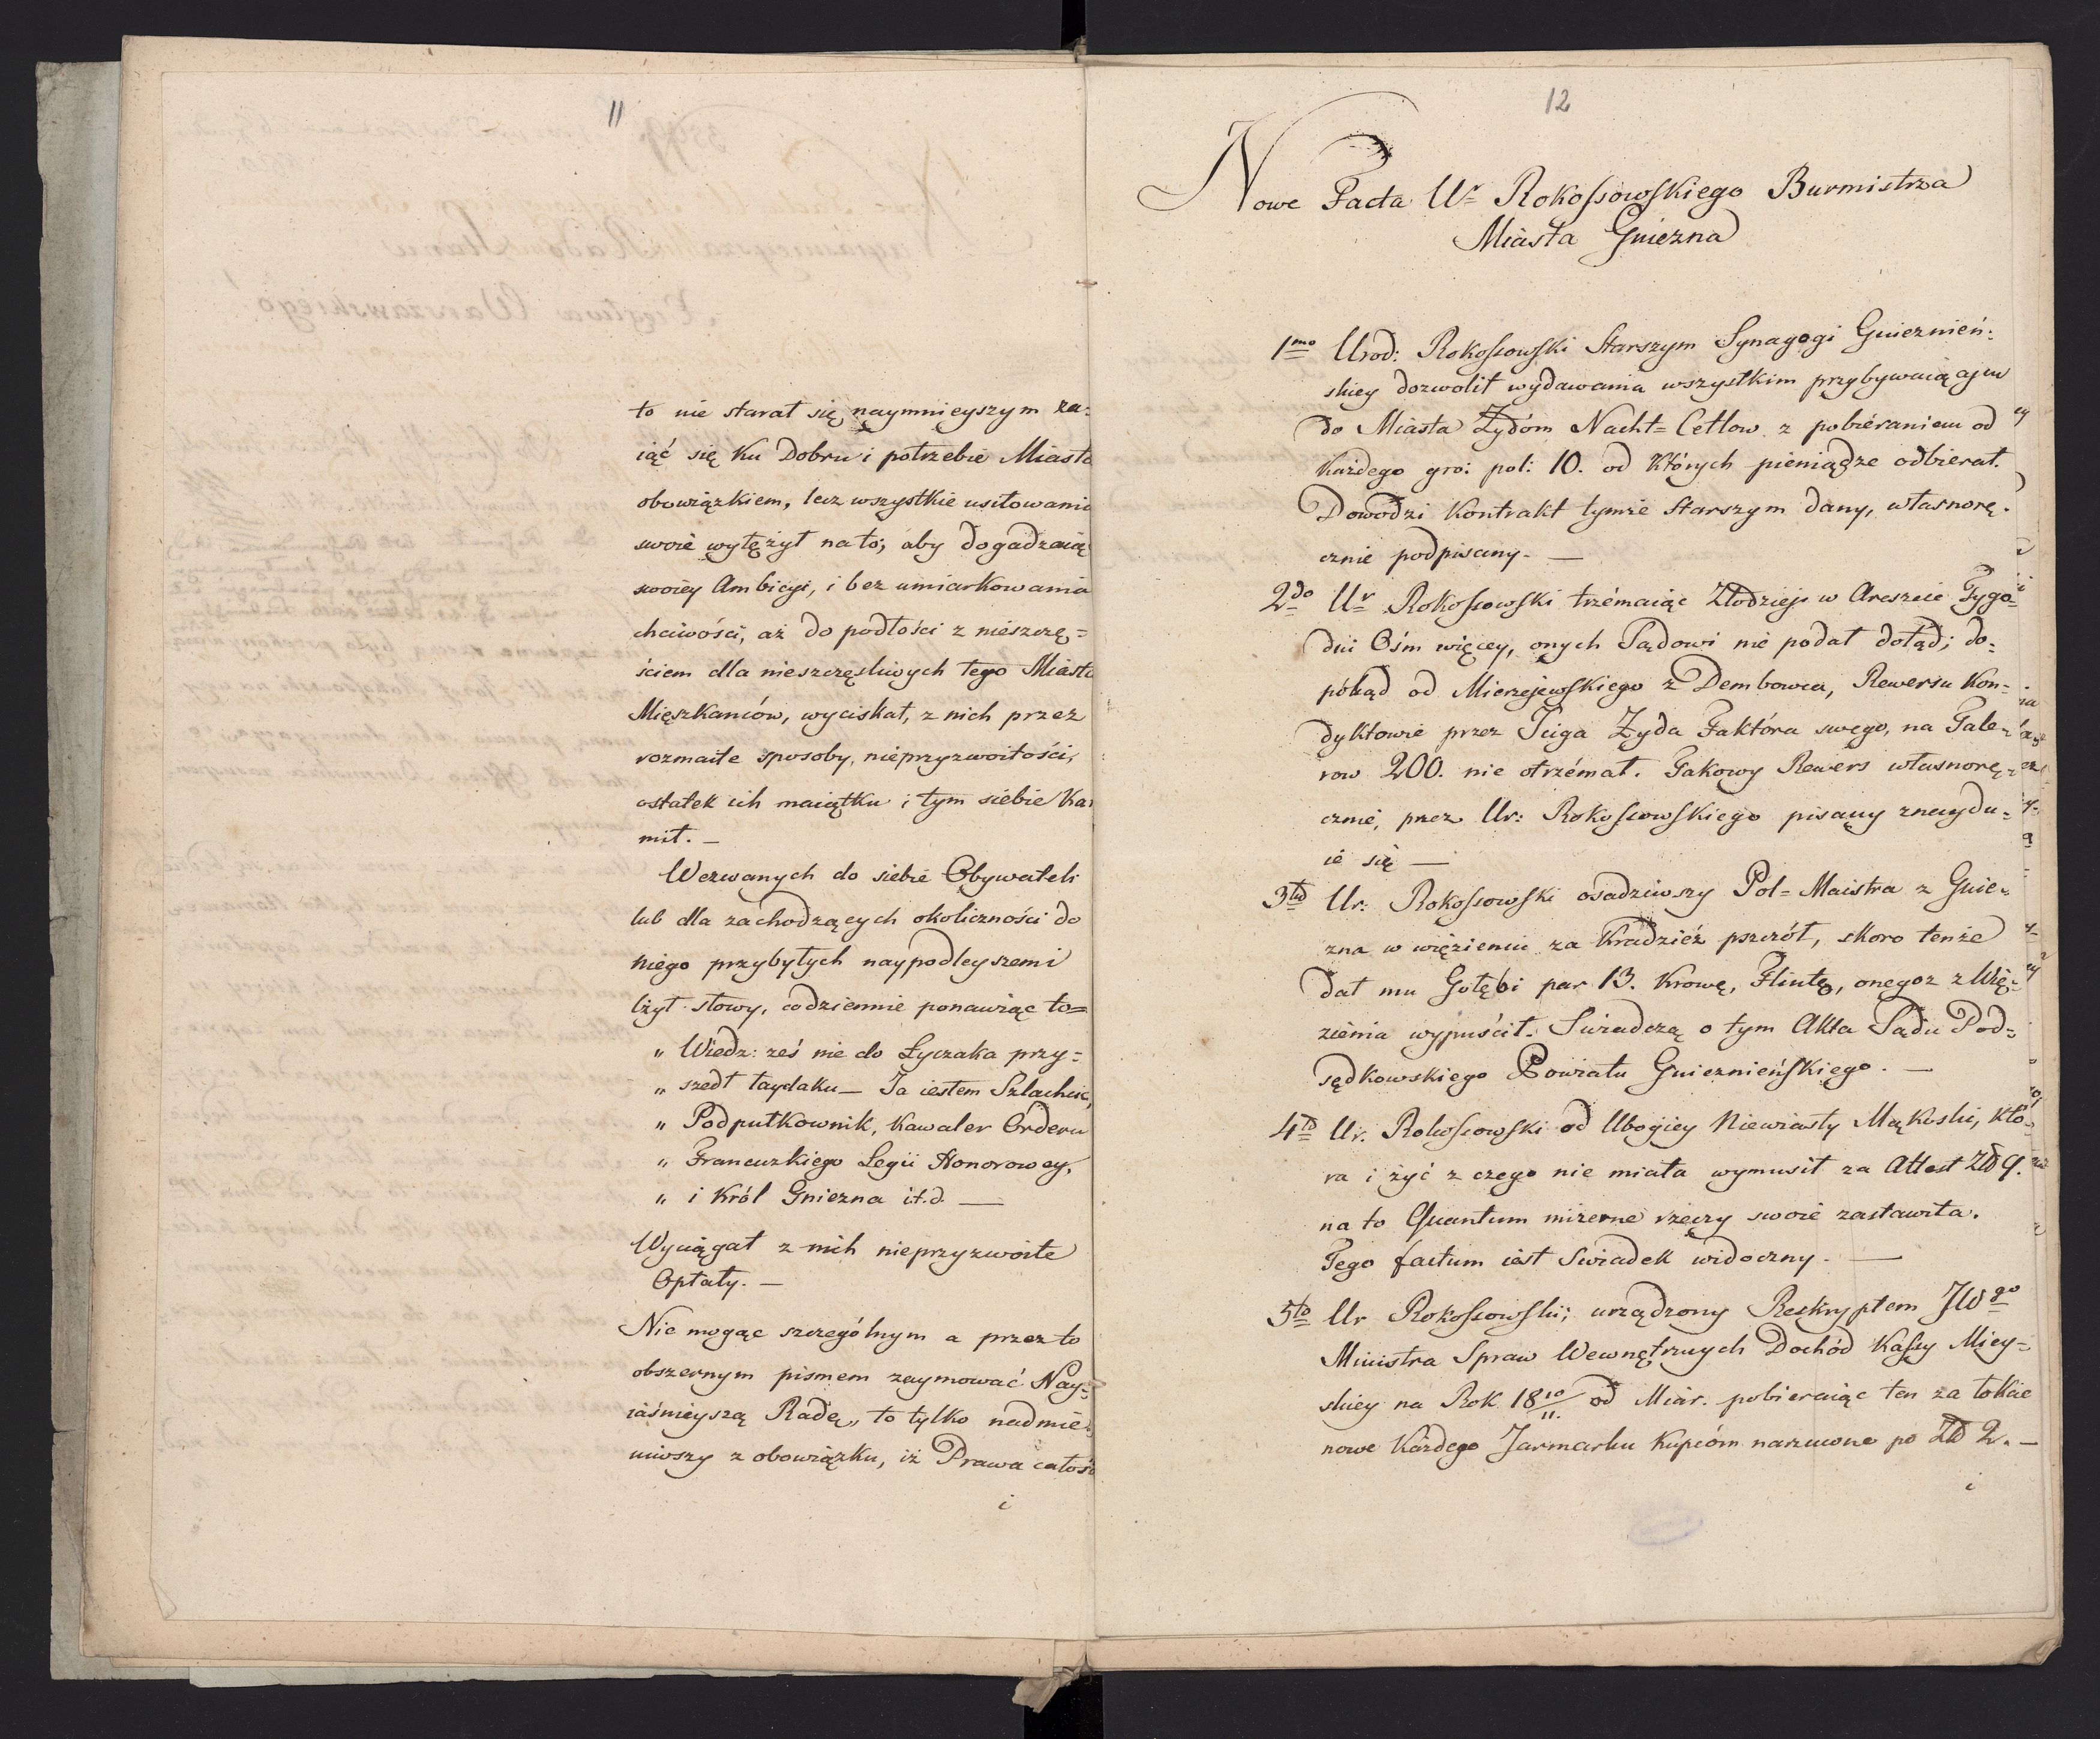 11
to nie starał się naymnieyszym za-
iąć się ku Dobru i potrzebie Miasta
obowiązkiem, lecz wszystkie usiłowania
swoie wytężył na to, aby dogadzaiąc
swoiey Ambicyi, i bez umiarkowania
chciwości, aż do podłości z nieszczę=
ściem dla nieszczęsliwych tego Miasta
Mięszkanców, wyciskał, z nich przez
rozmaite sposoby, nieprzyzwoitości,
ostatek ich maiątku i tym siebie kar
mił. —
Wezwanych do siebie Obywateli
lub dla zachodzących okoliczności do
niego przybyłych naypodleyszemi
lżył słowy, codziennie ponawiąc to=
„ Wiedz: żeś nie do Łyczaka przy=
„ szedł łaydaku — Ja iestem Szlachcic,
„ Podpułkownik, Kawaler Orderu
„ Francuzkiego Legii Honorowey,
„ i Król Gniezna it.d. —
Wyciągał z nich nieprzyzwoite
Opłaty. —
Nie mogąc szczególnym a przez to
obszernym pismem zaymować Nay=
iaśnieyszą Radę, to tylko nadmie-
niwszy z obowiązku, iż Prawa całość
i
12
Nowe Facta Ur Rokossowskiego Burmistrza
Miasta Gniezna
1mo Urod: Rokossowski Starszym Synagogi Gnieznień:
skiey dozwolił wydawania wszystkim przybywaiącym
do Miasta Żydóm Nacht=Cetlow z pobiéraniem od
każdego gro: pol: 10. od Których pieniądze odbierał.
Dowodzi Kontrakt tymże Starszym dany, własnorę-
cznie podpisany. —
2do Ur Rokossowski trzémaiąc Złodzieje w Areszcie Tygo-
dni Ośm więcey, onych Sądowi nie podał dotąd; do-
pókąd od Mierzejewskiego z Dembowca, Rewersu Kon-
dyktowie przez Żyda Faktóra swego, na Tale-
row 200. nie otrzémał. Takowy Rewers własnorę-
cznie, przez Ur: Rokossowskiego pisany znaydu-
ie się —
3tio Ur: Rokossowski osadziwszy Pol=Maistra z Gnie-
zna w więzieniu za Kradzież pszczół, skoro tenże
dał mu Gołębi par 13. Krowę, Flintę, onegoz z Wię-
zienia wypuścił. Swiadczą o tym Akta Sądu Pod-
sędkowskiego Powiatu Gnieznieńskiego. —
4to Ur. Rokossowski od Ubogiey Niewiasty Mąkoski, któ-
ra i żyć z czego nie miała wymusił za Attest Zł 9.
na to Quantum mizerne rzeczy swoie zastawiła.
Tego factum iest Swiadek widoczny. —
5to Ur Rokossowski; urządzony Reskryptem JWgo
Ministra Spraw Wewnętrznych Dochód Kassy Miey=
skiey na Rok 1810/11. od Miar. pobieraiąc ten za łokcie
nowe Każdego Jarmarku Kupcóm narzucone po Zł 2. —
i